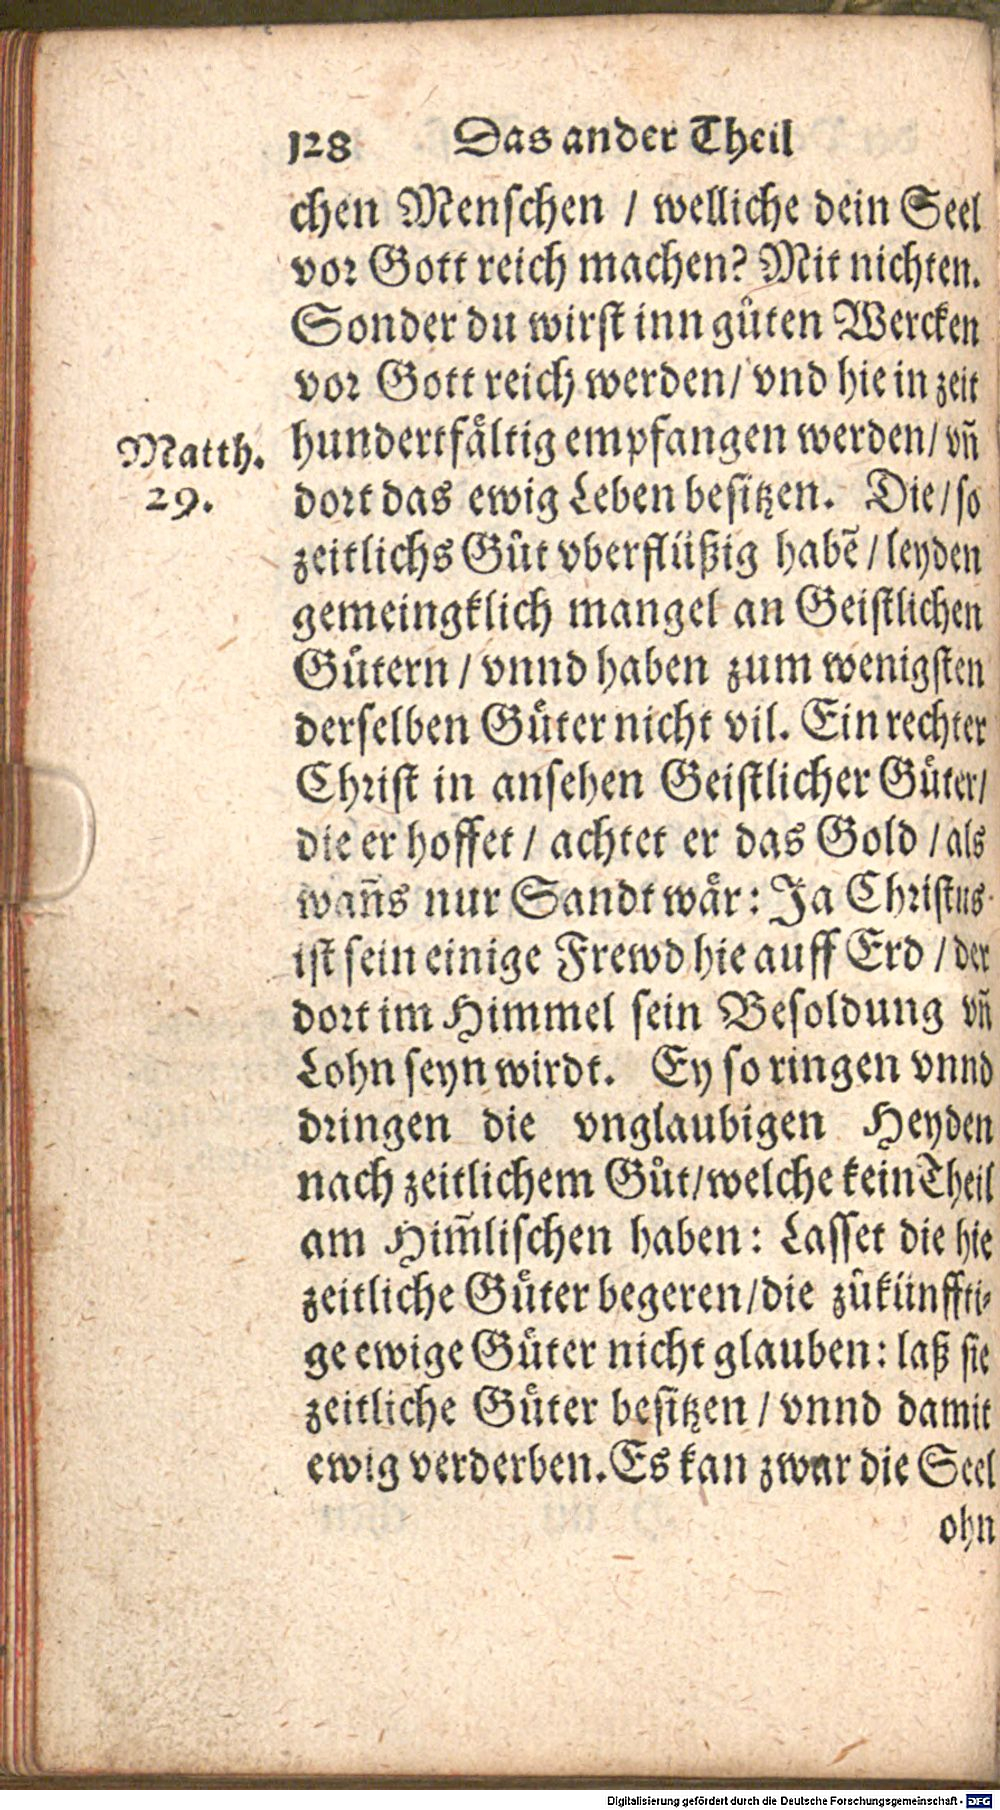 128 Das ander Theil
chen Menschen / welliche dein Seel
vor Gott reich machen? Mit nichten.
Sonder du wirst inn gůten Wercken
vor Gott reich werden / vnd hie in zeit
hundertfåltig empfangen werden / vñ
Matth.
29.
dort das ewig Leben besitzen. Die / so
zeitlichs Gůt vberflüßig habẽ / leyden
gemeingklich mangel an Geistlichen
Gůtern / vnnd haben zum wenigsten
derselben Gůter nicht vil. Ein rechter
Christ in ansehen Geistlicher Gůter /
die er hoffet / achtet er das Gold / als
wañs nur Sandt wår: Ja Christus
ist sein einige Frewd hie auff Erd / der
dort im Himmel sein Besoldung vñ
Lohn seyn wirdt. Ey so ringen vnnd
dringen die vnglaubigen Heyden
nach zeitlichem Gůt / welche kein Theil
am Him̃lischen haben: Lasset die hie
zeitliche Gůter begeren / die zůkünffti-
ge ewige Gůter nicht glauben: laß sie
zeitliche Gůter besitzen / vnnd damit
ewig verderben. Es kan zwar die Seel
ohn
Digitalisierung gefördert durch die Deutsche Forschungsgemeinschaft - DFG